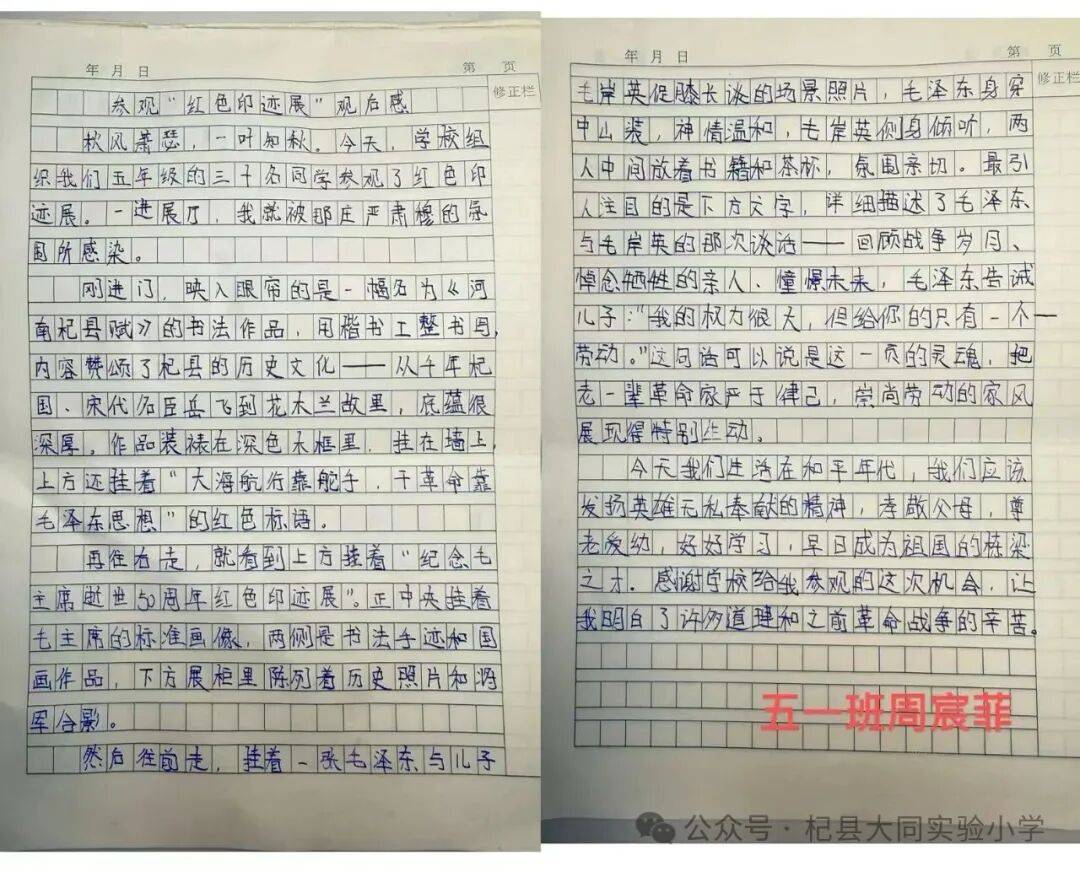 年 月 日 第 页
修正栏
参观“红色印迹展”观后感
秋风萧瑟，一叶知秋。今天，学校组
织我们五年级的三十名同学参观了红色印
迹展。一进展厅，我就被那庄严肃穆的氛
围所感染。
刚进门，映入眼帘的是一幅名为《河
南杞县赋》的书法作品，用楷书工整书写，
内容赞颂了杞县的历史文化——从千年杞
国、宋代名臣岳飞到花木兰故里，底蕴很
深厚。作品装裱在深色木框里，挂在墙上，
上方还挂着“大海航行靠舵手，干革命靠
毛泽东思想”的红色标语。
再往右走，就看到上方挂着“纪念毛
主席逝世50周年红色印迹展”。正中央挂着
毛主席的标准画像，两侧是书法手迹和国
画作品，下方展柜里陈列着历史照片和将
军合影。
然后往前走，挂着一张毛泽东与儿子
年 月 日 第 页
修正栏
毛岸英促膝长谈的场景照片，毛泽东身穿
中山装，神情温和，毛岸英侧身倾听，两
人中间放着书籍和茶杯，氛围亲切。最引
人注目的是下方文字，详细描述了毛泽东
与毛岸英的那次谈话——回顾战争岁月、
悼念牺牲的亲人、憧憬未来，毛泽东告诫
儿子：“我的权力很大，但给你的只有一个—
劳动。”这句话可以说是这一页的灵魂，把
老一辈革命家严于律己，崇尚劳动的家风
展现得特别生动。
今天我们生活在和平年代，我们应该
发扬英雄无私奉献的精神，孝敬父母，尊
老爱幼，好好学习，早日成为祖国的栋梁
之才。感谢学校给我参观的这次机会，让
我明白了许多道理和之前革命战争的辛苦。
五一班周宸菲
公众号·杞县大同实验小学